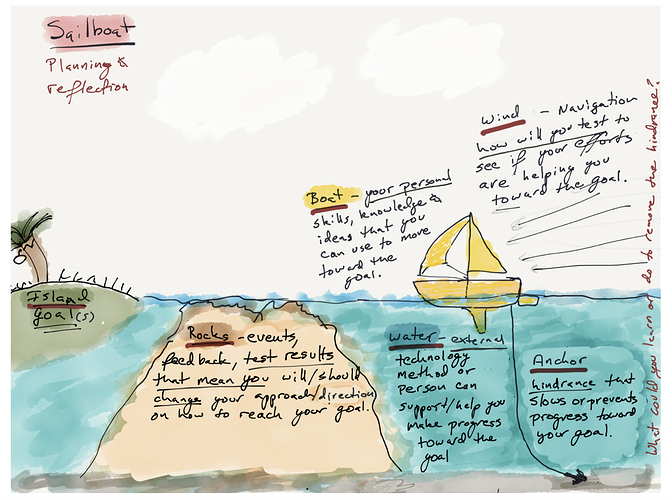 Sailboat
Planning &
reflection
Wind - Navigation
how will you test to
see if your efforts
are helping you
toward the goal.
Boat - your personal
skills, knowledge &
ideas that you
can use to move
toward the
goal.
Island
Goal(s)
Rocks - events,
feedback, test results
that mean you will/should
change your approach/direction
on how to reach your goal.
Water - external
technology
method or
person can
support/help you
make progress
toward the
goal
Anchor
hindrance that
slows or prevents
progress toward
your goal.
What could you learn or do to remove the hindrance?